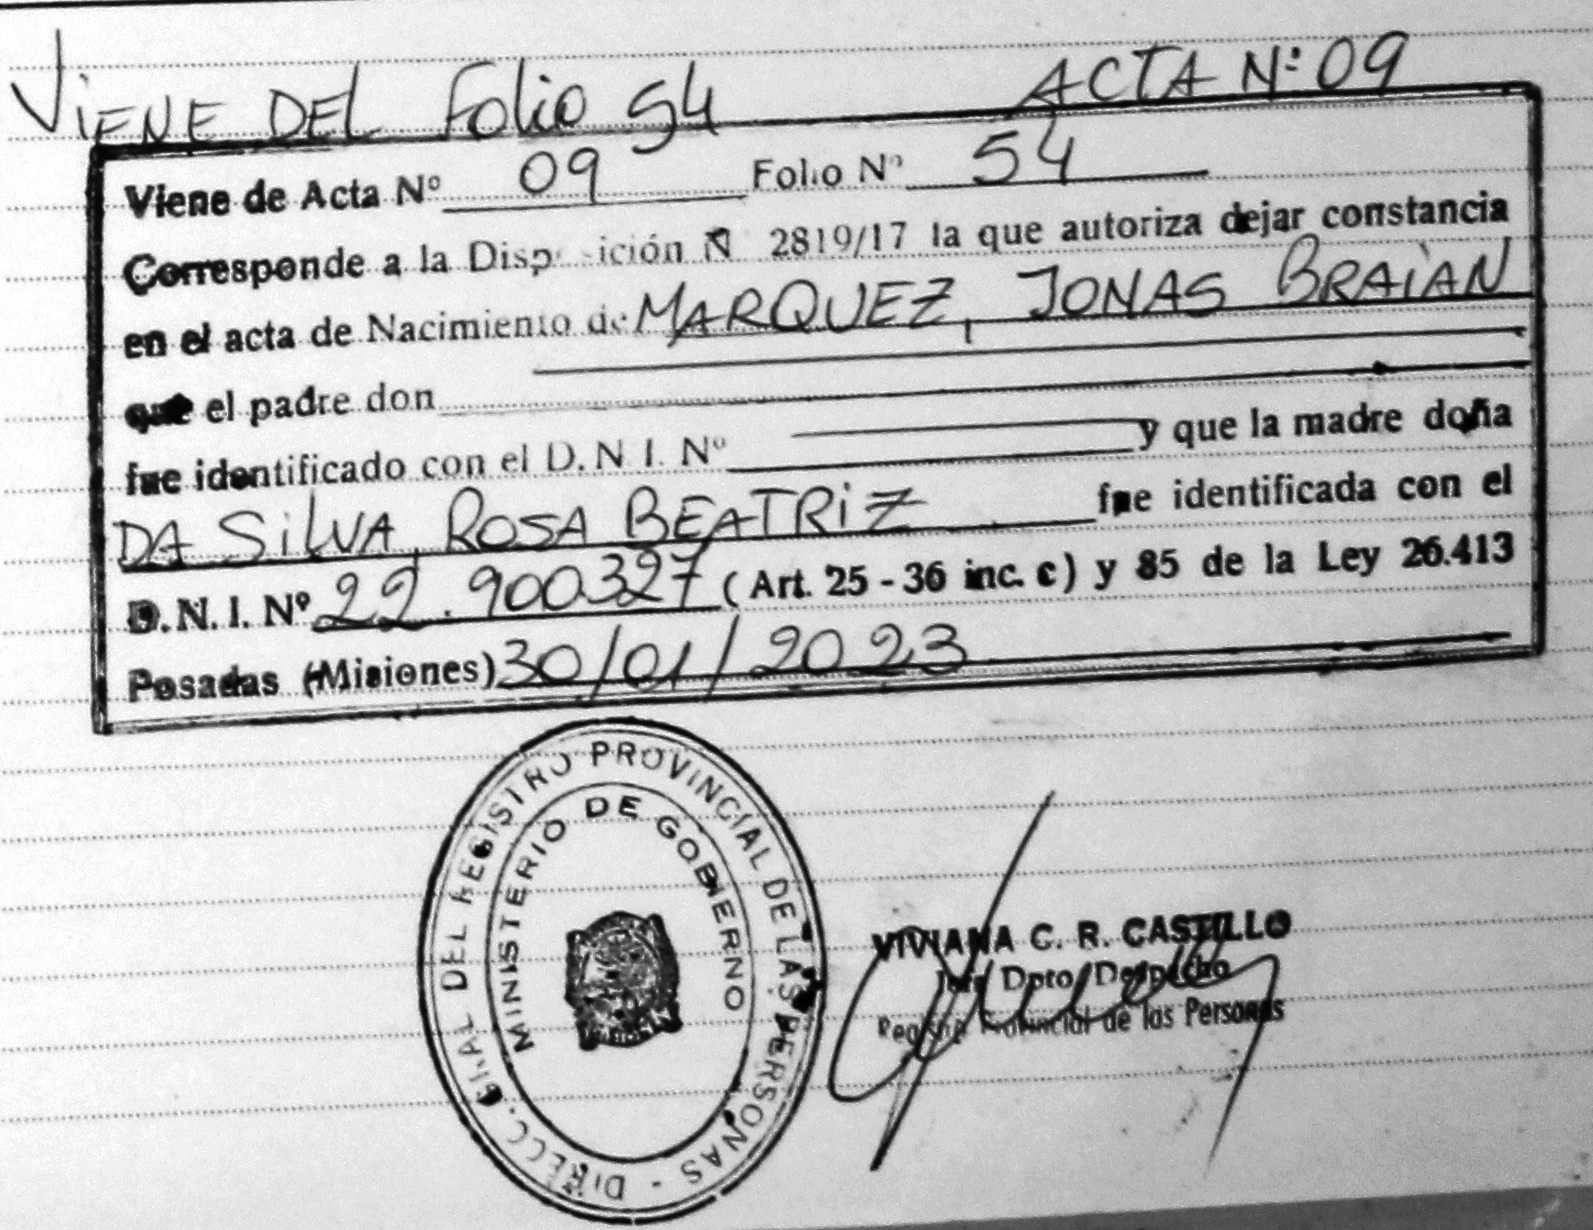 VIENE DEL Folio 54 ACTA Nº 09
Viene de Acta Nº 09 Folio Nº 54
Corresponde a la Disposición N 2819/17 la que autoriza dejar constancia
en el acta de Nacimiento de MARQUEZ, JONAS BRAIAN
que el padre don
fue identificado con el D.N.I. Nº y que la madre doña
DA SILVA, ROSA BEATRIZ fue identificada con el
D.N.I. Nº 22.900327 (Art. 25 - 36 inc. c) y 85 de la Ley 26.413
Posadas (Misiones) 30/01/2023
DIRECC. GRAL DEL REGISTRO PROVINCIAL DE LAS PERSONAS -
MINISTERIO DE GOBIERNO
VIVIANA C. R. CASTILLO
Jefe Dpto Despacho
Registro Provincial de las Personas